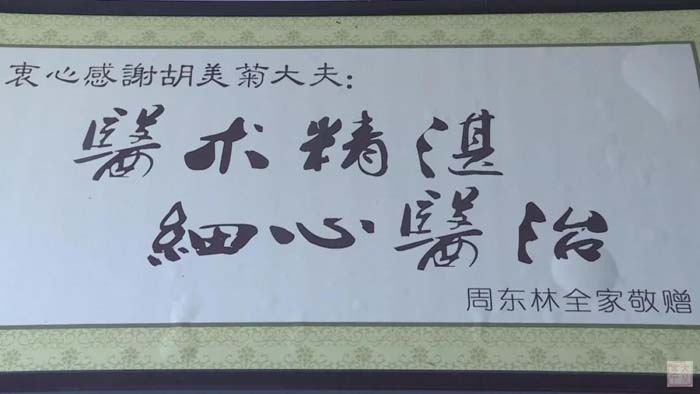 衷心感謝胡美菊大夫：
醫术精湛
細心醫治
周东林全家敬赠